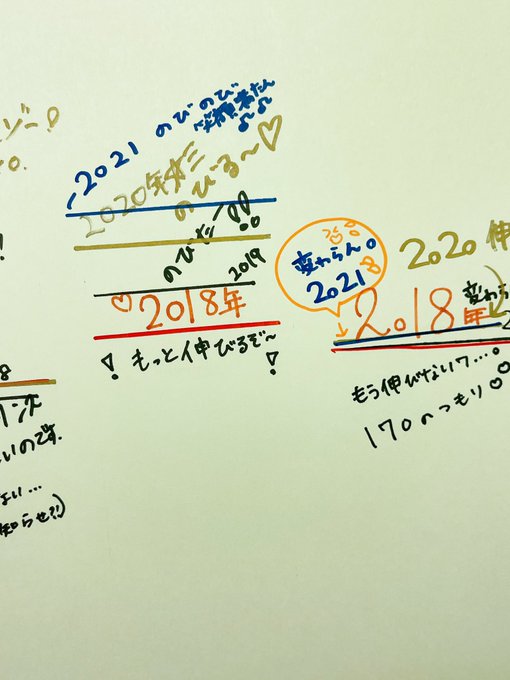 2021 のびのび
2020年
のびる〜♡
のびた!!
2019
♡2018年
もっと伸びるぞ〜!
変わらん。
2021
2020 伸
2018年
変わら
もう伸びないワ…。
170のつもり♡♡
8
いのです。
ない…
知らせ?!)